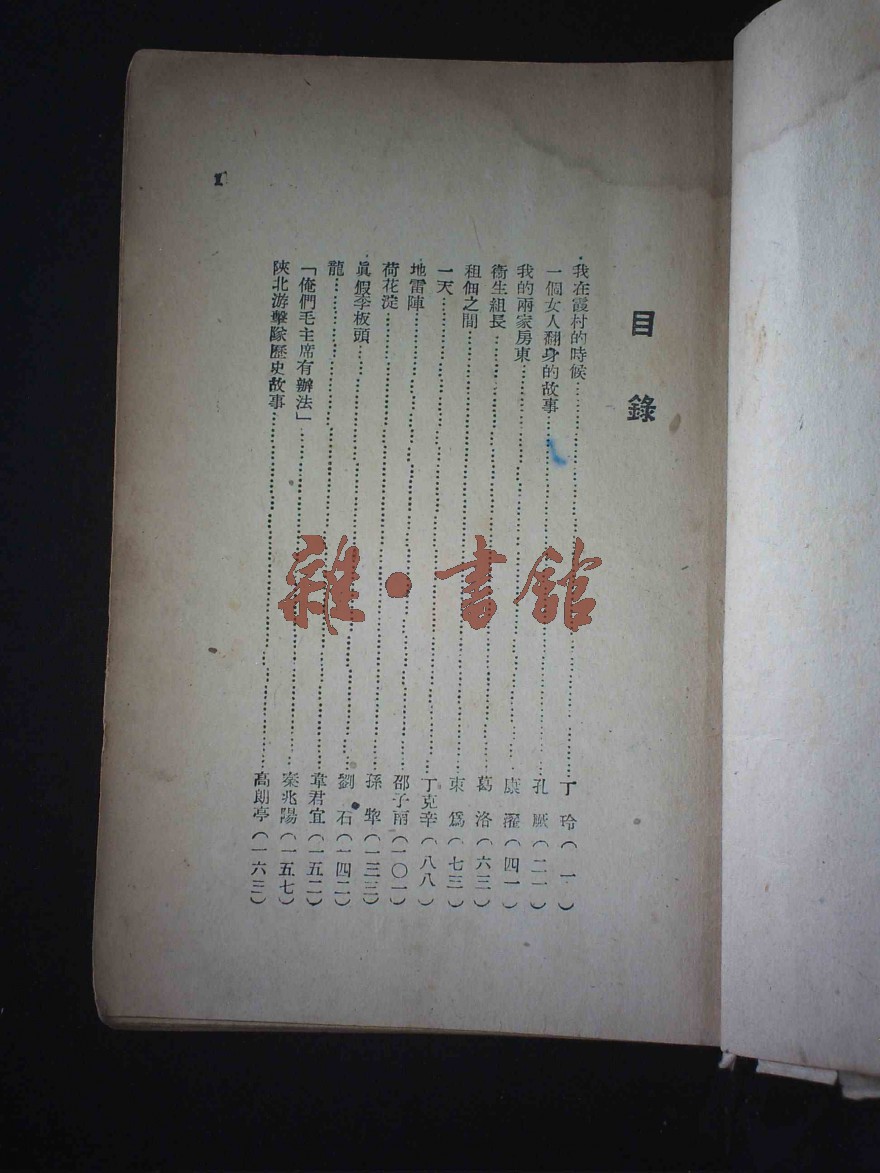 目錄
我在霞村的時候…………丁玲(一)
一個女人翻身的故事…………孔厥(二一)
我的兩家房東…………康濯(四一)
衞生組長…………葛洛(六三)
租佃之間…………束爲(七三)
一天…………丁克辛(八八)
地雷陣…………邵子南(一〇一)
荷花淀…………孫犂(一三三)
眞假李板頭…………劉石(一四二)
龍…………韋君宜(一五二)
「俺們毛主席有辦法」…………秦兆陽(一五七)
陝北游擊隊歷史故事…………高朗亭(一六三)
1
雜·書館